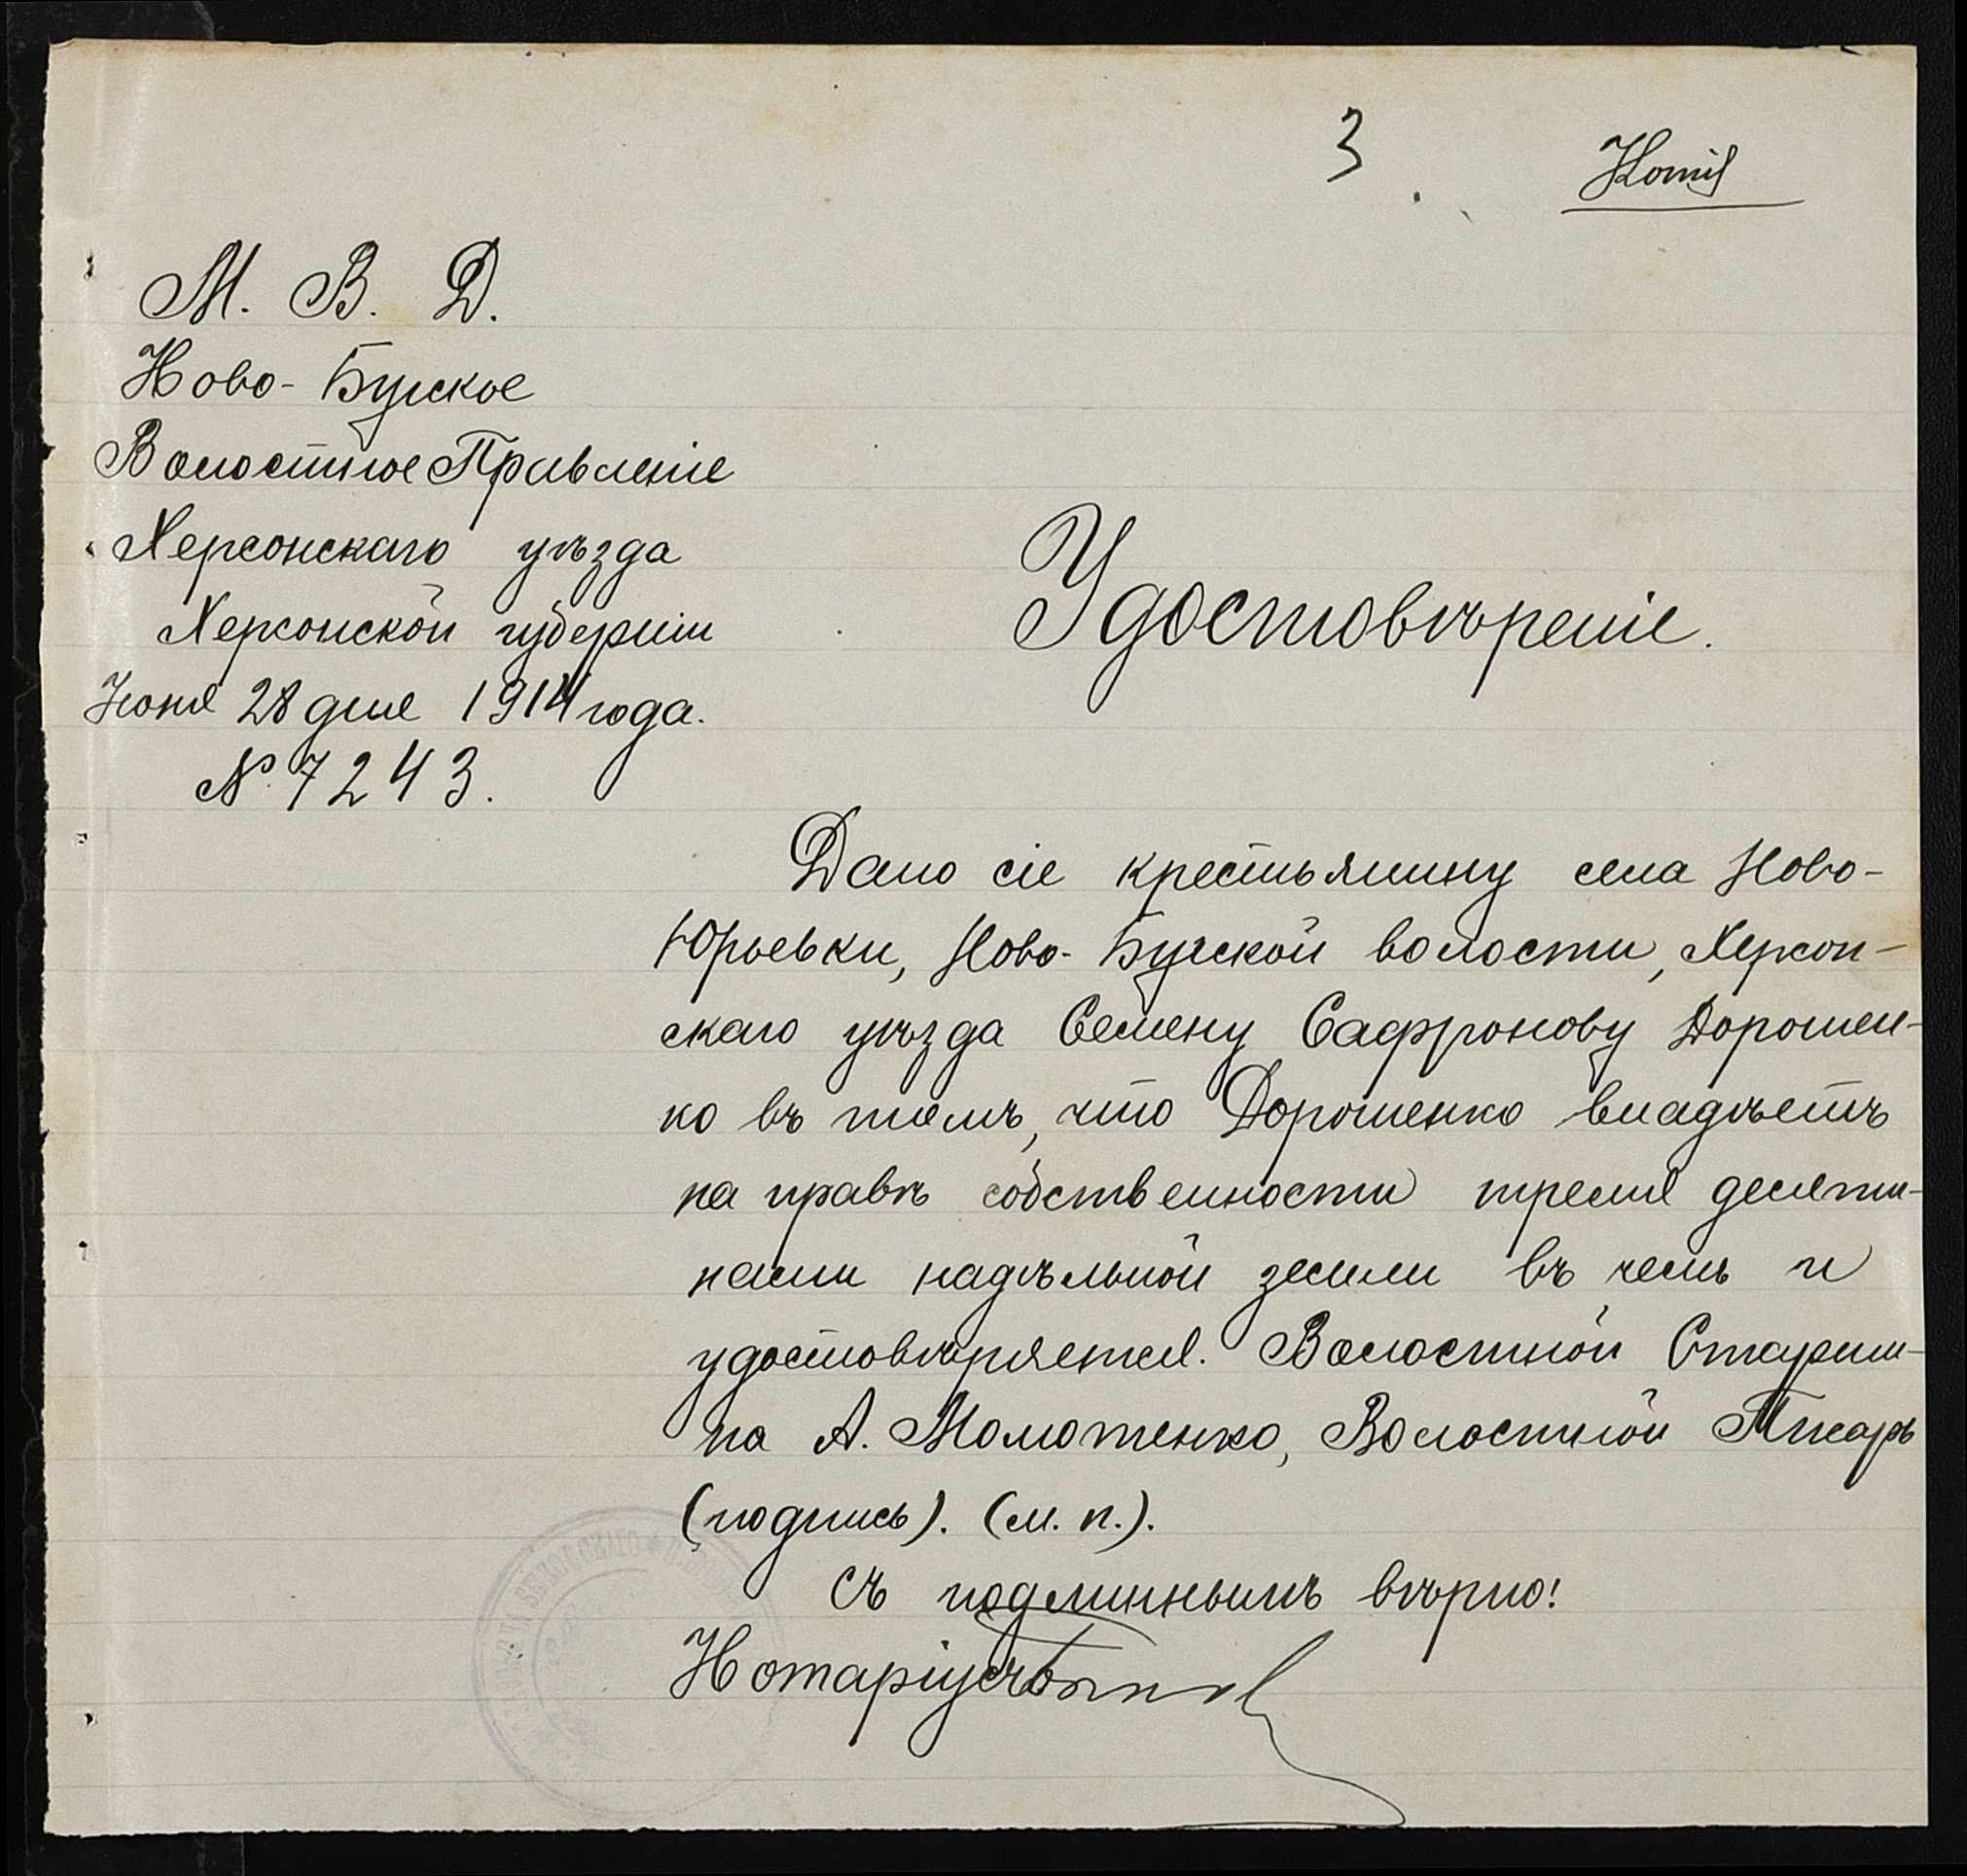 3
Копія
М. В. Д.
Ново-Бугское
Волостное Правленіе
Херсонскаго уѣзда
Херсонской губерніи
Іюня 28 дня 1914 года.
№ 7243.
Удостовѣреніе.
Дано сіе крестьянину села Ново-
Юрьевки, Ново-Бугской волости, Херсон-
скаго уѣзда Семену Сафронову Дорошен-
ко въ томъ, что Дорошенко владѣетъ
на правѣ собственности тремя десяти-
нами надѣльной земли въ чемъ и
удостовѣряется. Волостной Старши-
на А. Молотенко, Волостной Писарь
(подпись). (м. п.).
Съ подлиннымъ вѣрно!
Нотаріусъ